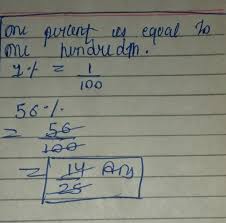 one percent is equal to
one hundredth.
1% = 1/100
56%
= 56/100
= 14/25 Ans